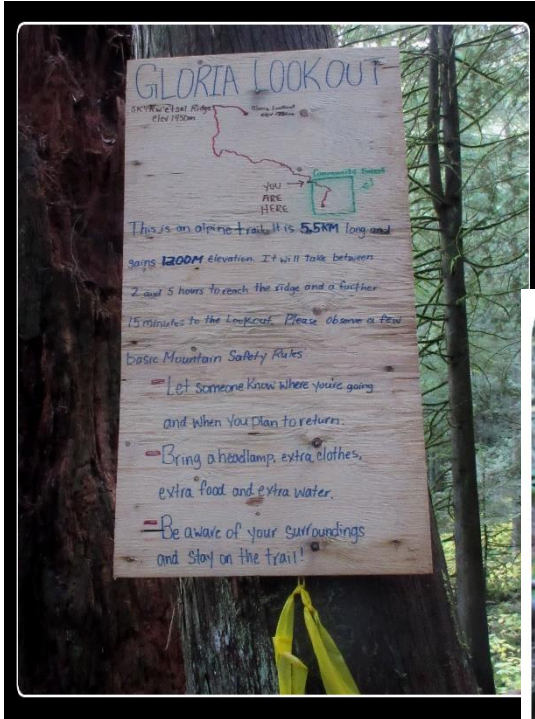 GLORIA LOOKOUT
Ridge
elev 1950m
Gloria Lookout
Community Forest
YOU
ARE
HERE
This is an alpine trail. It is 5.5KM long and
gains 1200M elevation. It will take between
2 and 5 hours to reach the ridge and a further
15 minutes to the Lookout. Please observe a few
basic Mountain Safety Rules
- Let someone know where you're going
and when you plan to return.
- Bring a headlamp, extra clothes,
extra food and extra water.
- Be aware of your surroundings
and stay on the trail!